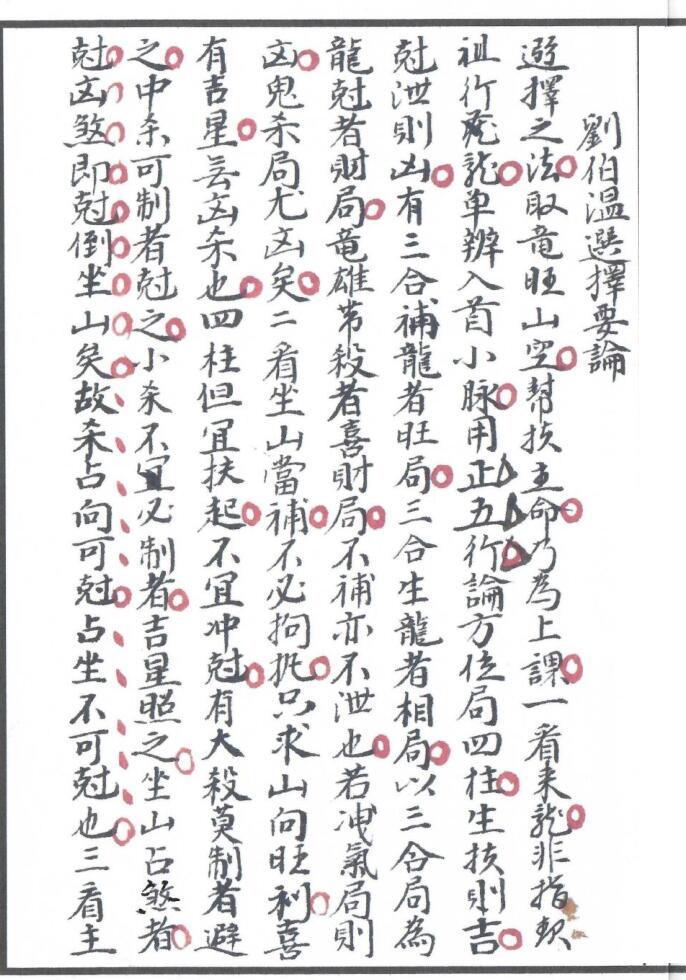 劉伯溫選擇要論
選擇之法取竜旺山空幫扶主命乃為上課一看来龍非指
祖行龍单辨入首小脉用正五行論方位局四柱生扶則吉
尅泄則凶有三合補龍者旺局三合生龍者相局以三合局為
龍尅者財局竜雄帯殺者喜財局不補亦不泄也若洩氣局則
凶鬼杀局尤凶矣二看坐山當補不必拘扵只求山向旺利喜
有吉星无凶杀也四柱但宜扶起不宜冲尅有大殺莫制者避
之中杀可制者尅之小杀不宜必制者吉星照之坐山占煞者
尅凶煞即尅倒坐山矣故杀占向可尅占坐不可尅也三看主